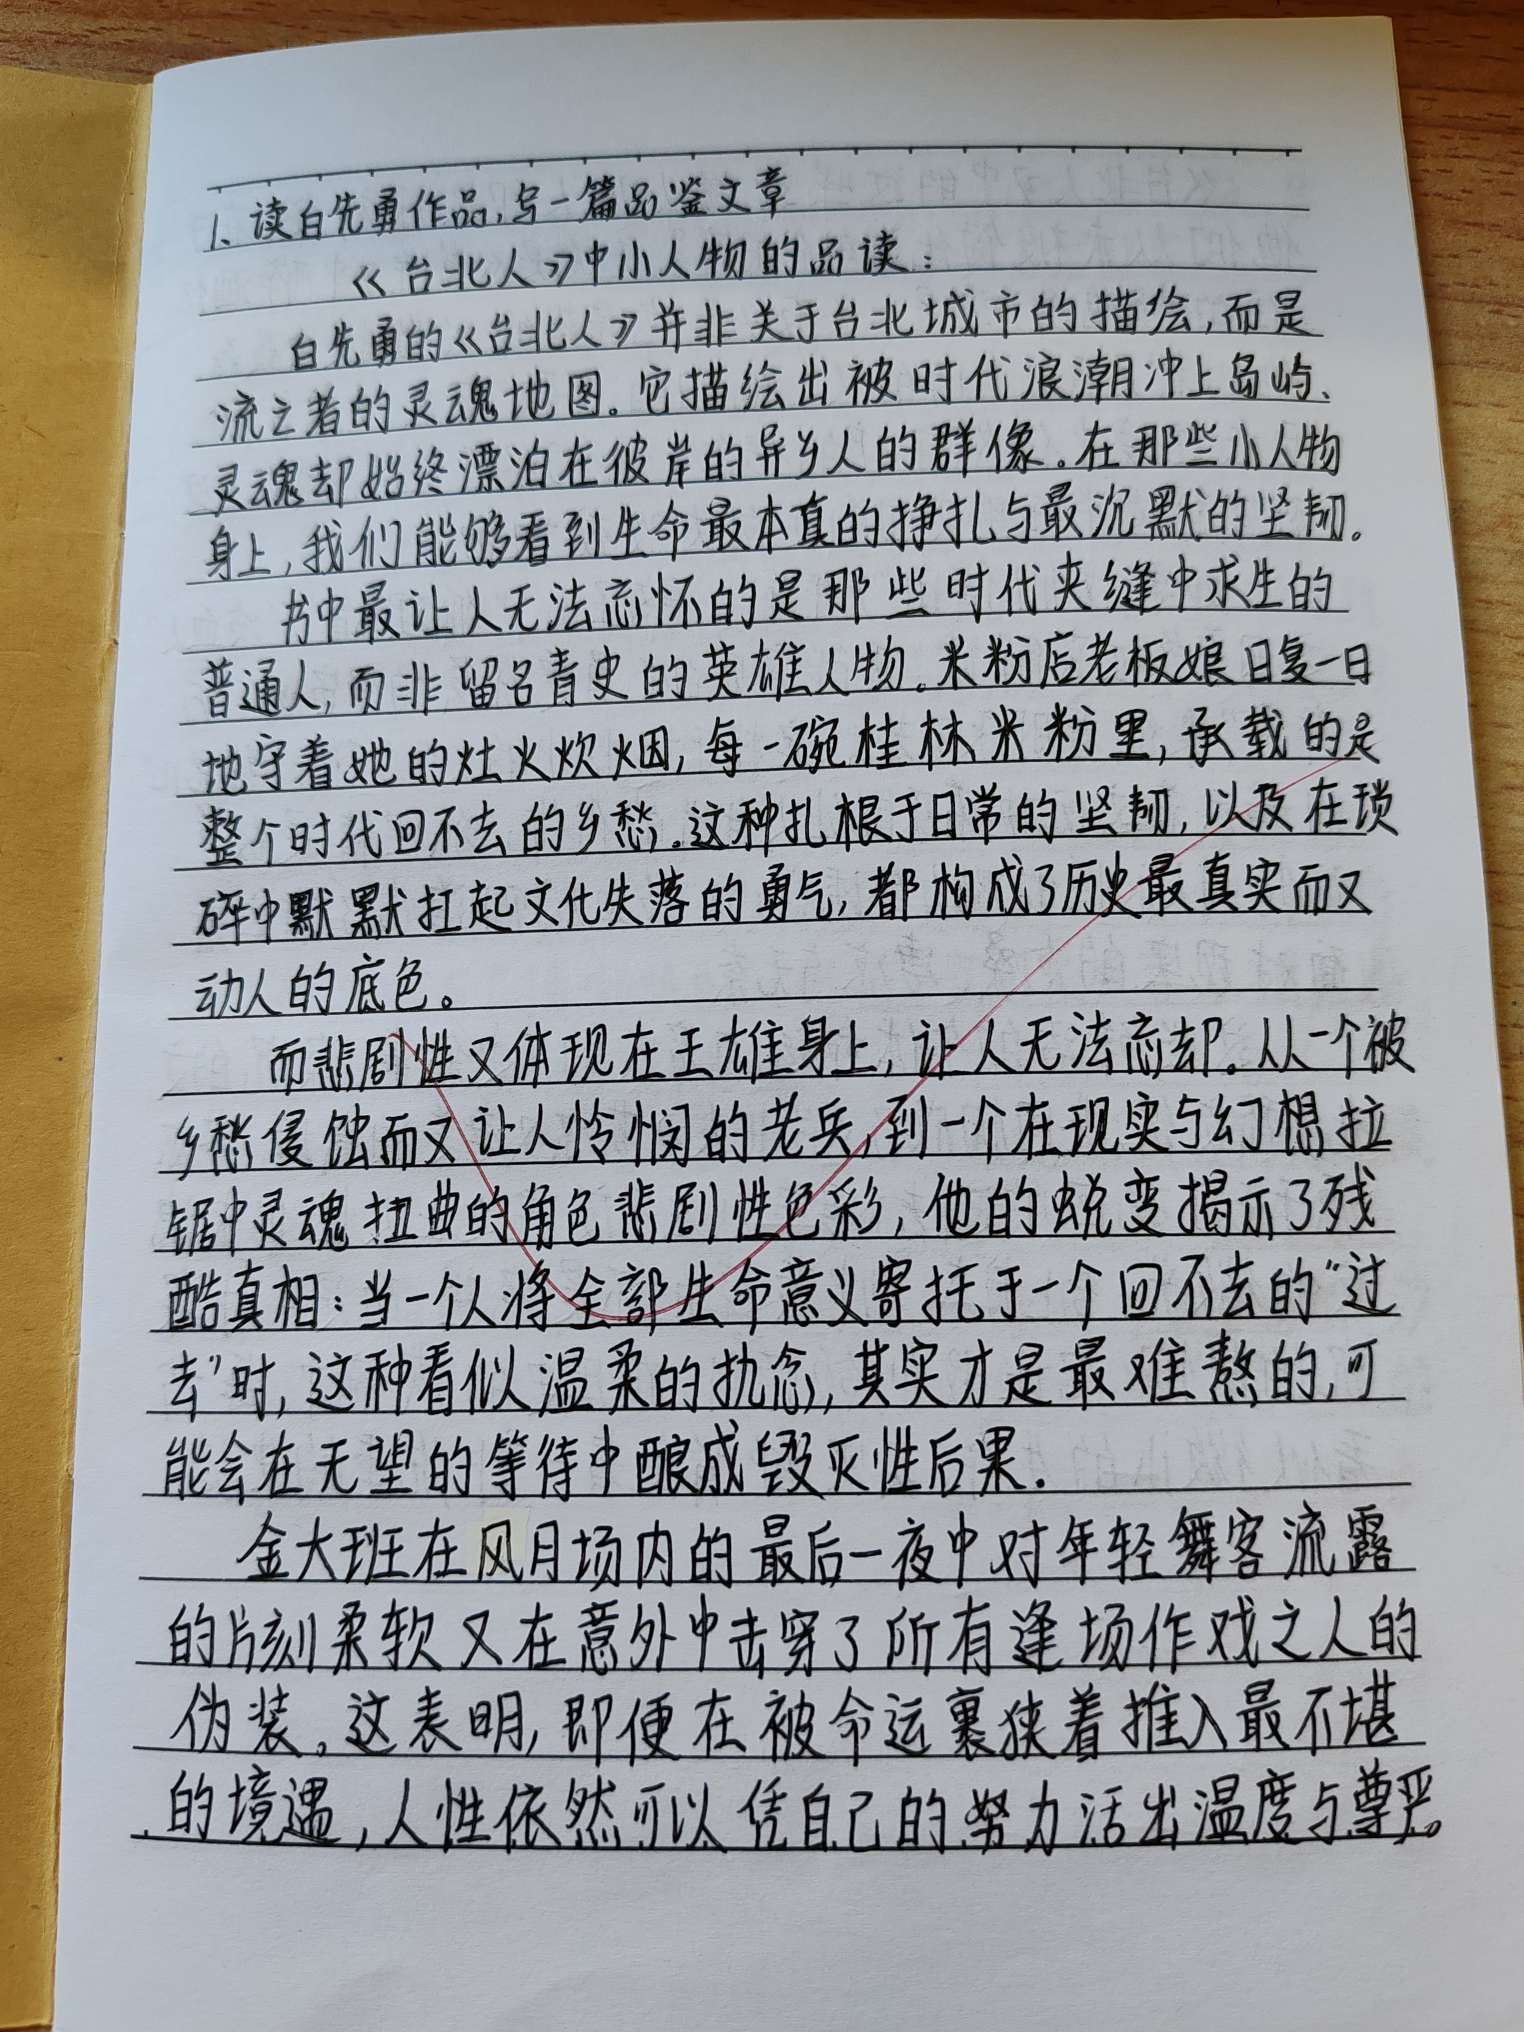 1、读白先勇作品,写一篇品鉴文章
《台北人》中小人物的品读:
白先勇的《台北人》并非关于台北城市的描绘,而是
流亡者的灵魂地图。它描绘出被时代浪潮冲上岛屿、
灵魂却始终漂泊在彼岸的异乡人的群像。在那些小人物
身上,我们能够看到生命最本真的挣扎与最沉默的坚韧。
书中最让人无法忘怀的是那些时代夹缝中求生的
普通人,而非留名青史的英雄人物。米粉店老板娘日复一日
地守着她的灶火炊烟,每一碗桂林米粉里,承载的是
整个时代回不去的乡愁。这种扎根于日常的坚韧,以及在琐
碎中默默扛起文化失落的勇气,都构成了历史最真实而又
动人的底色。
而悲剧性又体现在王雄身上,让人无法忘却。从一个被
乡愁侵蚀而又让人怜悯的老兵,到一个在现实与幻想拉
锯中灵魂扭曲的角色悲剧性色彩,他的蜕变揭示了残
酷真相:当一个人将全部生命意义寄托于一个回不去的“过
去”时,这种看似温柔的执念,其实才是最难熬的,可
能会在无望的等待中酿成毁灭性后果。
金大班在风月场内的最后一夜中对年轻舞客流露
的片刻柔软又在意外中击穿了所有逢场作戏之人的
伪装。这表明,即便在被命运裹狭着推入最不堪
的境遇,人性依然可以凭自己的努力活出温度与尊严。